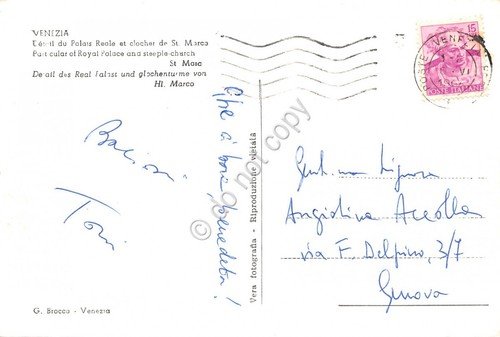 VENEZIA
Détail du Palais Reale et clocher de St. Marco
Particular of Royal Palace and steeple-church
St Marc
Detail des Real Palast und glochenturme von
Hl. Marco
do not copy
Vera fotografia - Riproduzione vietata
Bacioni
Toni
G. Brocca - Venezia
15
POSTE ITALIANE
POSTE VENEZIA
Gent.ma Signora
Angiolina Accolla
via F. Delpino, 3/7
Genova